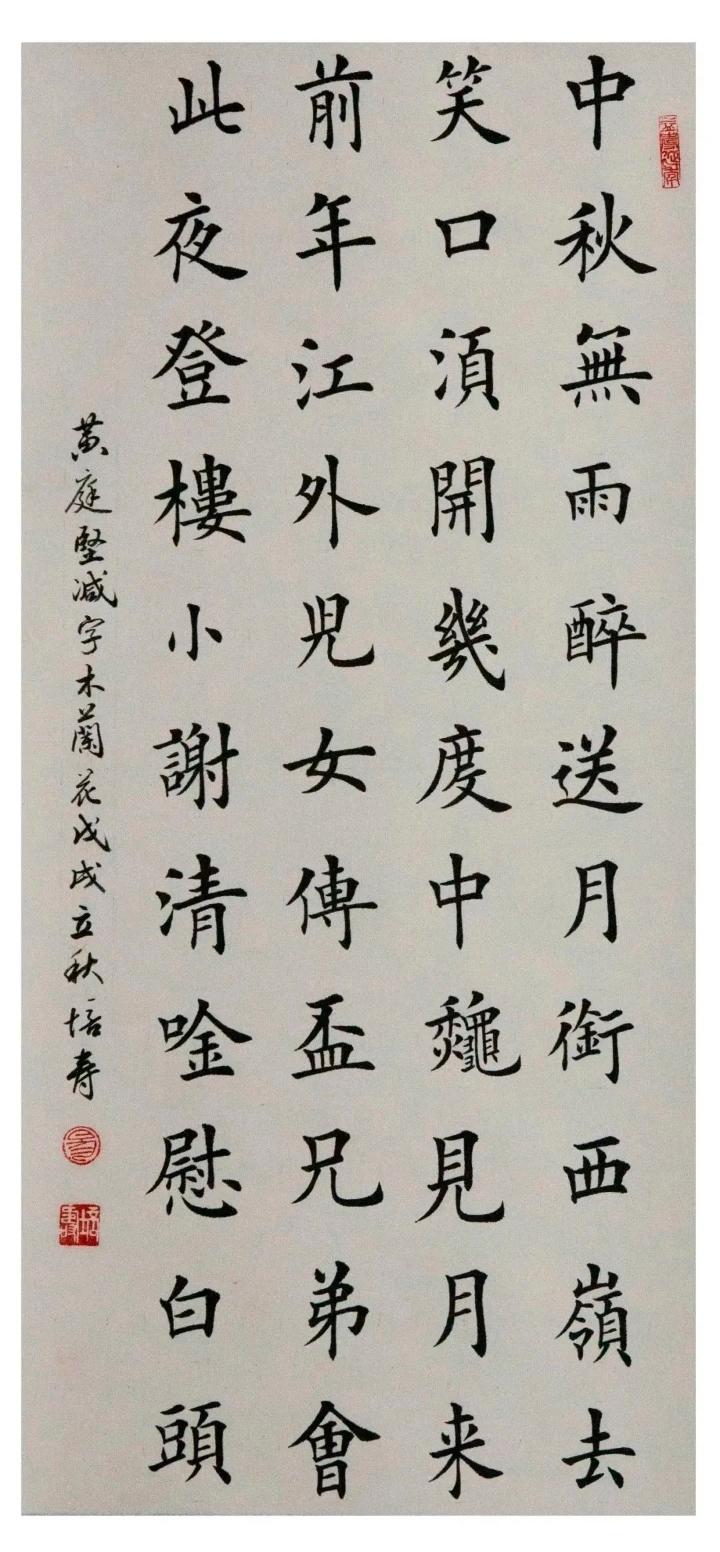 中秋無雨醉送月銜西嶺去
笑口湏開幾度中龝見月来
前年江外児女傳盃兄弟會
此夜登樓小謝清唫慰白頭
黄庭堅减字木蘭花戊戌立秋培寿